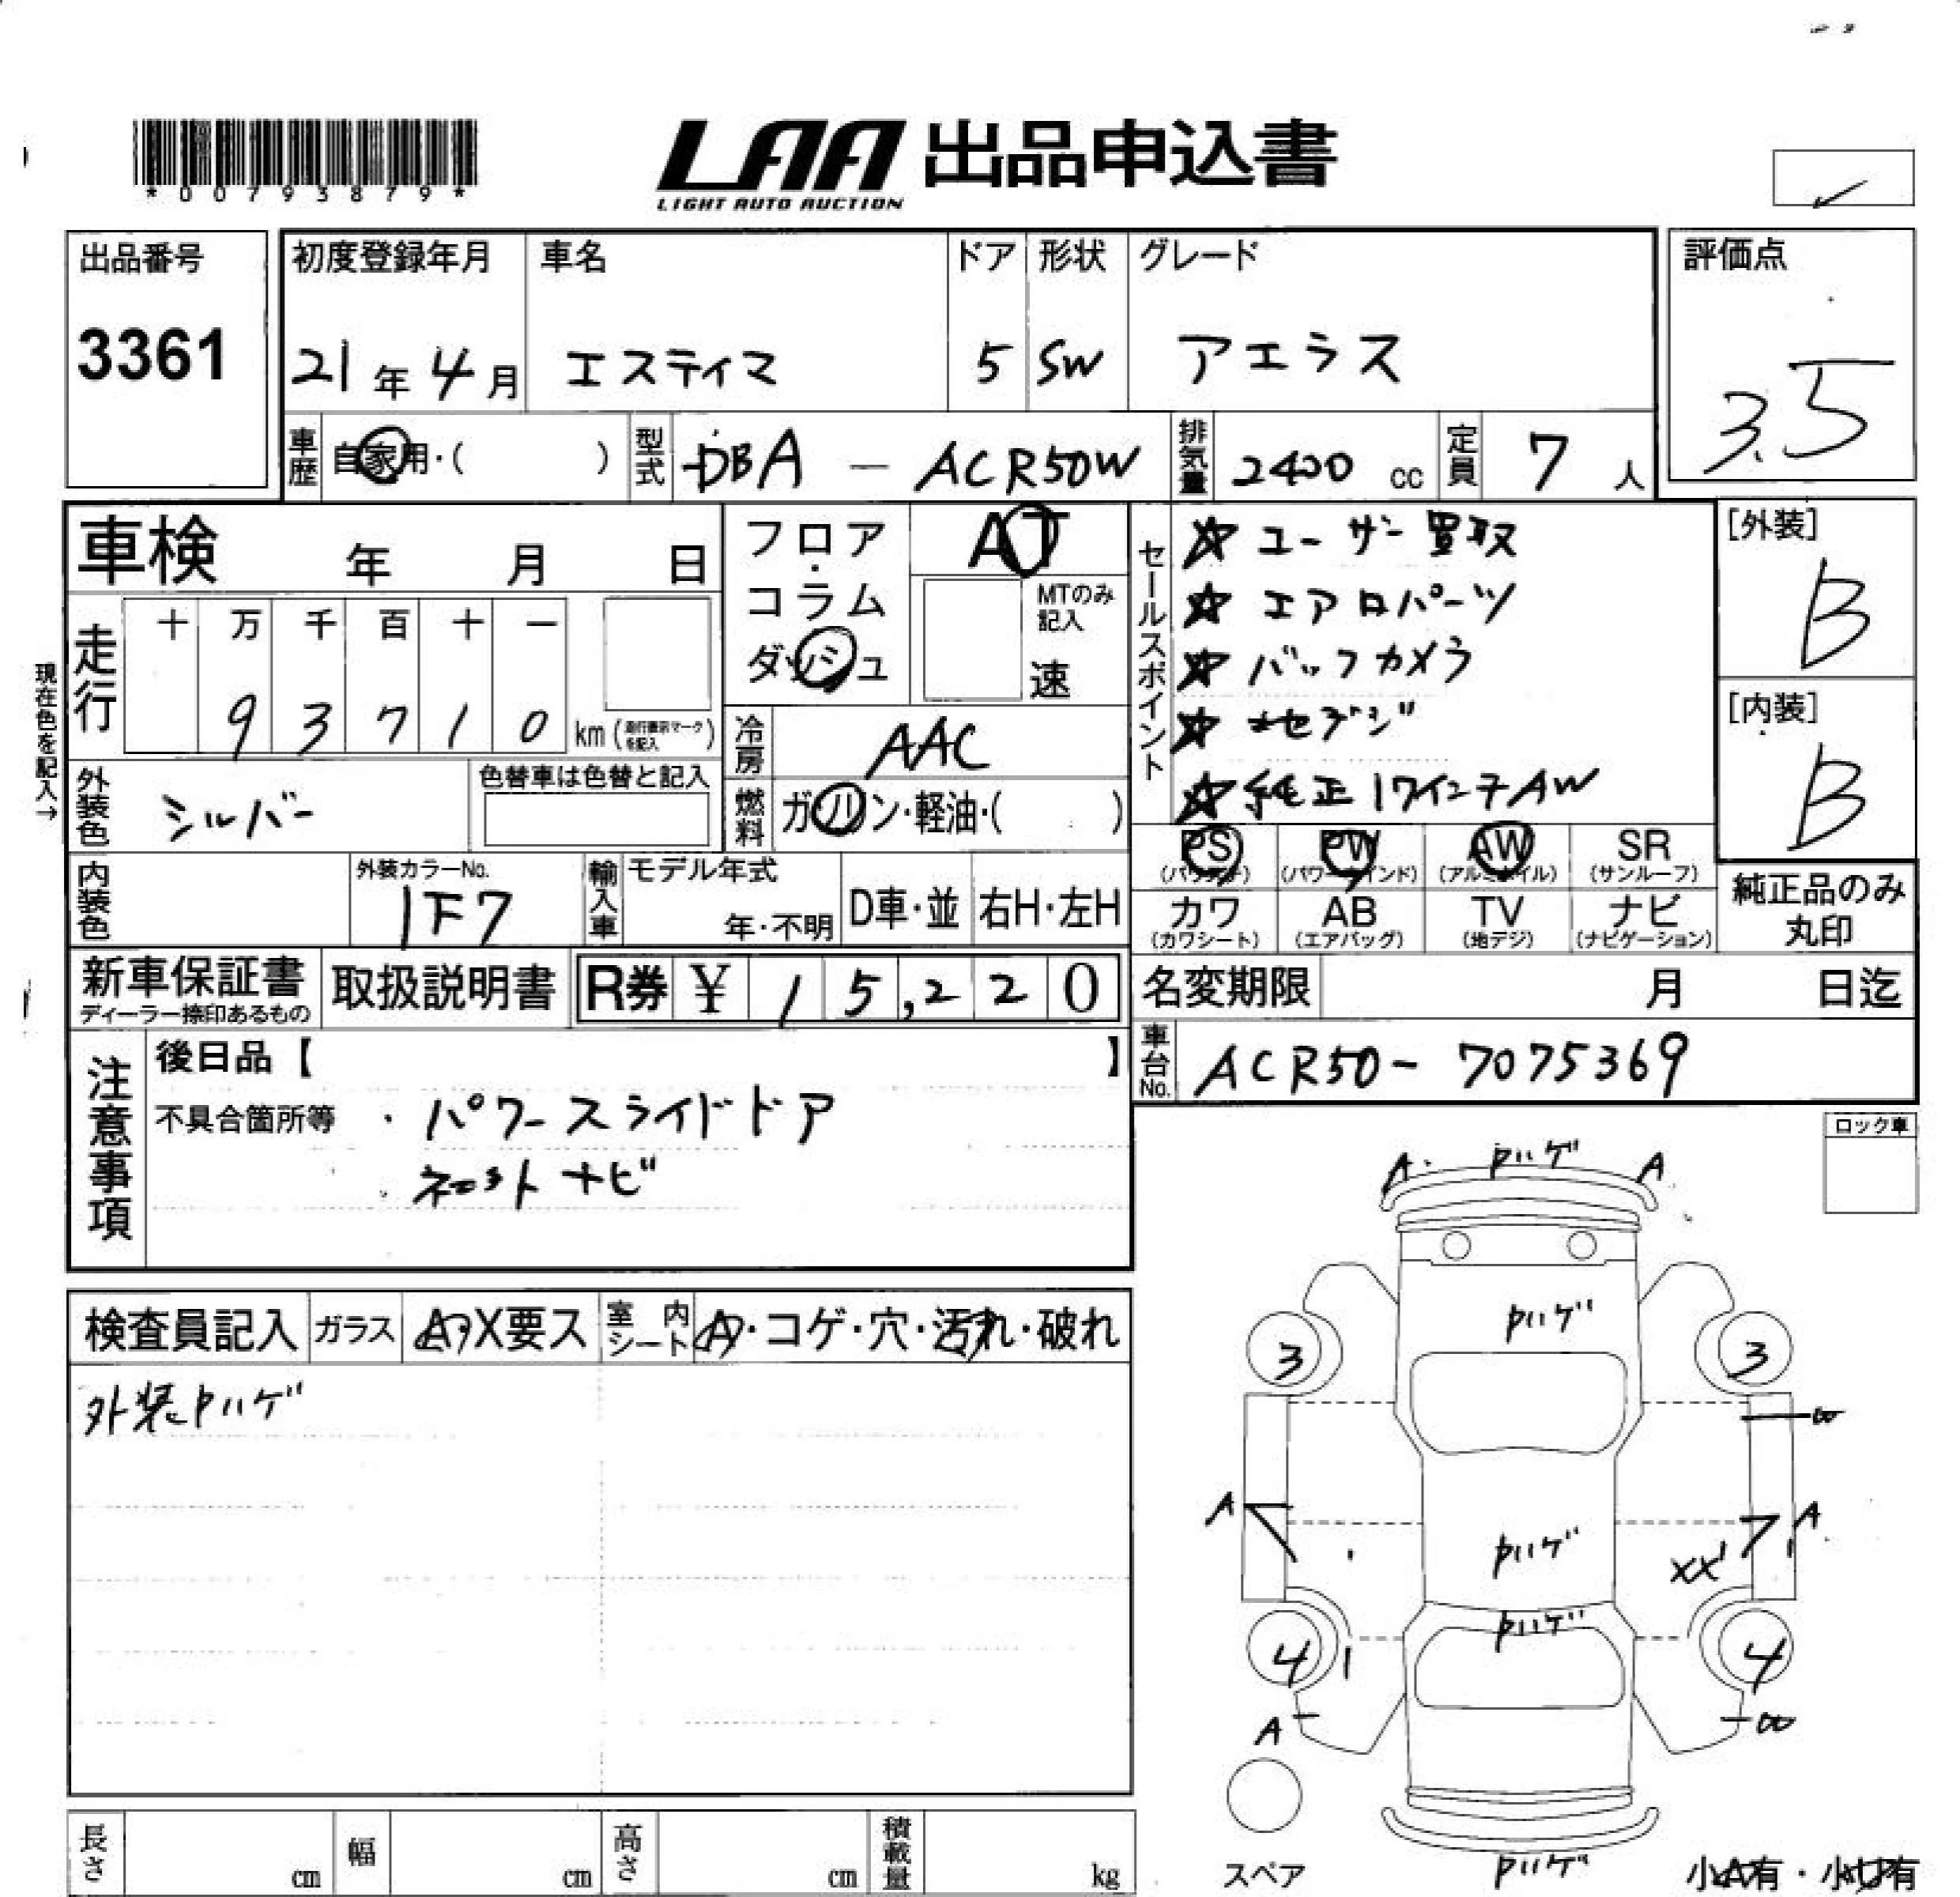 *00793879*
LAA 出品申込書
LIGHT AUTO AUCTION
出品番号
3361
初度登録年月
21年4月
車名
エスティマ
ドア
5
形状
SW
グレード
アエラス
評価点
3.5
車歴 自家用・( )
型式 DBA - ACR50W
排気量 2400 cc
定員 7 人
車検 年 月 日
走行 十 万 千 百 十 一
9 3 7 1 0 km (走行表示マークを記入)
現在色を記入→
外装色 シルバー
色替車は色替と記入
内装色
外装カラーNo.
1F7
フロア・コラム ダッシュ
AT
MTのみ記入
速
冷房 AAC
燃料 ガソリン・軽油・( )
輸入車 モデル年式
年・不明
D車・並
右H・左H
セールスポイント
☆ ユーザー買取
☆ エアロパーツ
☆ バックカメラ
☆ 純正17インチAW
[外装]
B
[内装]
B
PS (パワステ)
PW (パワーウインド)
AW (アルミホイル)
SR (サンルーフ)
カワ (カワシート)
AB (エアバッグ)
TV (地デジ)
ナビ (ナビゲーション)
純正品のみ丸印
新車保証書
ディーラー捺印あるもの
取扱説明書
R券 ¥ 15,220
名変期限 月 日迄
車台No. ACR50-7075369
注意事項
後日品【 】
不具合箇所等 ・パワースライドドア
ナビ
ロック車
検査員記入
ガラス A・X要ス
室内シート A・コゲ・穴・汚れ・破れ
外装ハゲ
A
ハゲ
A
ハゲ
3
3
A
A
ハゲ
XX
ハゲ
4
4
A
ハゲ
スペア
小A有・小U有
長さ cm
幅 cm
高さ cm
積載量 kg